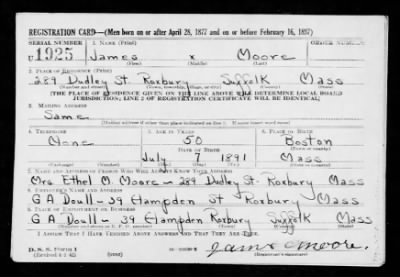 REGISTRATION CARD—(Men born on or after April 28, 1877 and on or before February 16, 1897)
SERIAL NUMBER 1. NAME (Print) ORDER NUMBER
U 1925 James x Moore
2. PLACE OF RESIDENCE (Print)
289 Dudley St. Roxbury Suffolk Mass
(Number and street) (Town, township, village, or city) (County) (State)
[THE PLACE OF RESIDENCE GIVEN ON THE LINE ABOVE WILL DETERMINE LOCAL BOARD
JURISDICTION; LINE 2 OF REGISTRATION CERTIFICATE WILL BE IDENTICAL]
3. MAILING ADDRESS
Same
[Mailing address if other than place indicated on line 2. If same insert word same]
4. TELEPHONE 5. AGE IN YEARS 6. PLACE OF BIRTH
None 50 Boston
DATE OF BIRTH (Town or county)
July 7 1891 Mass
(Exchange) (Number) (Mo.) (Day) (Yr.) (State or country)
7. NAME AND ADDRESS OF PERSON WHO WILL ALWAYS KNOW YOUR ADDRESS
Mrs Ethel M. Moore - 289 Dudley St. Roxbury Mass
8. EMPLOYER'S NAME AND ADDRESS
G A Doull - 39 Hampden St Roxbury Mass
9. PLACE OF EMPLOYMENT OR BUSINESS
G A Doull - 39 Hampden Roxbury Suffolk Mass
(Number and street or R. F. D. number) (Town) (County) (State)
I AFFIRM THAT I HAVE VERIFIED ABOVE ANSWERS AND THAT THEY ARE TRUE.
D. S. S. Form 1
(Revised 4-1-42) (over) James Moore.